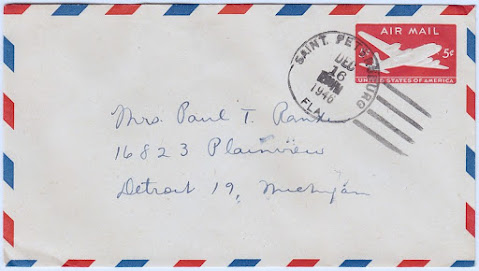 AIR MAIL
5¢
UNITED STATES OF AMERICA
SAINT PETERSBURG
DEC
16
1946
FLA.
Mrs. Paul T.
16823 Plainview
Detroit 19, Michigan